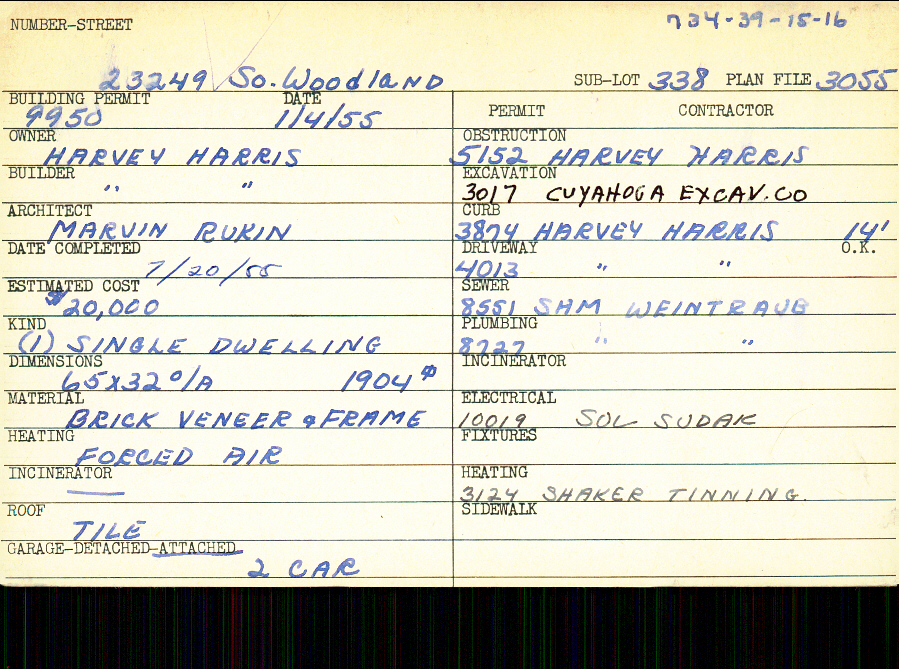 NUMBER-STREET
734-39-15-16
23249 So. Woodland
SUB-LOT 338 PLAN FILE 3055
BUILDING PERMIT DATE
9950 1/4/55
PERMIT CONTRACTOR
OWNER
HARVEY HARRIS
OBSTRUCTION
5152 HARVEY HARRIS
BUILDER
" "
EXCAVATION
3017 CUYAHOGA EXCAV. CO
ARCHITECT
MARVIN RUKIN
CURB
3874 HARVEY HARRIS 14'
DATE COMPLETED
7/20/55
DRIVEWAY O.K.
4013 " "
ESTIMATED COST
$20,000
SEWER
8551 SHM WEINTRAUB
KIND
(1) SINGLE DWELLING
PLUMBING
8727 " "
DIMENSIONS
65x32 o/A 1904
INCINERATOR
MATERIAL
BRICK VENEER & FRAME
ELECTRICAL
10019 SOL SUDAK
HEATING
FORCED AIR
FIXTURES
INCINERATOR
—
HEATING
3124 SHAKER TINNING.
ROOF
TILE
SIDEWALK
GARAGE-DETACHED-ATTACHED
2 CAR